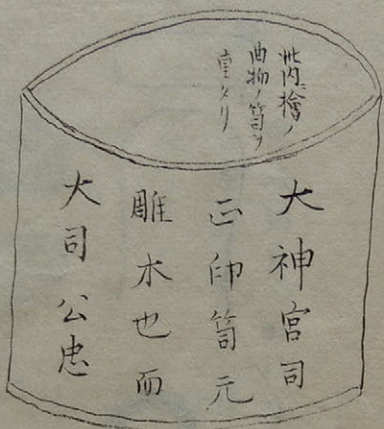 此内檜ノ
曲物ノ筥ヲ
重タリ
大神宮司
正印筥元
雕木也而
大司公忠